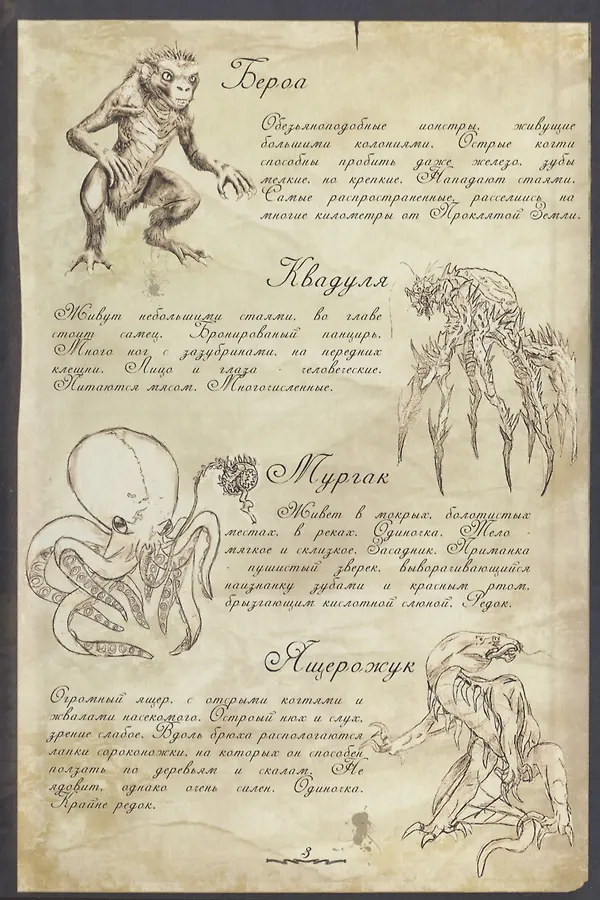 Бероа
Обезьяноподобные монстры, живущие
большими колониями. Острые когти
способны пробить даже железо, зубы
мелкие, но крепкие. Нападают стаями.
Самые распространенные, расселишсь на
многие километры от Проклятой Земли.
Квадуля
Живут небольшими стаями, во главе
стоит самец. Бронированый панцирь.
Много ног с зазубринами, на передних
клешни. Лицо и глаза - человеческие.
Питаются мясом. Многочисленные.
Мургак
Живет в мокрых, болотистых
местах, в реках. Одиночка. Тело -
мягкое и склизкое. Засадник. Приманка
- пушистый зверек, выворачивающийся
наизнанку зубами и красным ртом,
брызгающим кислотной слюной. Редок.
Ящерожук
Огромный ящер, с острыми когтями и
жвалами насекомого. Острый нюх и слух,
зрение слабое. Вдоль брюха распологаются
лапки сороконожки, на которых он способен
ползать по деревьям и скалам. Не
ядовит, однако очень силен. Одиночка.
Крайне редок.
3